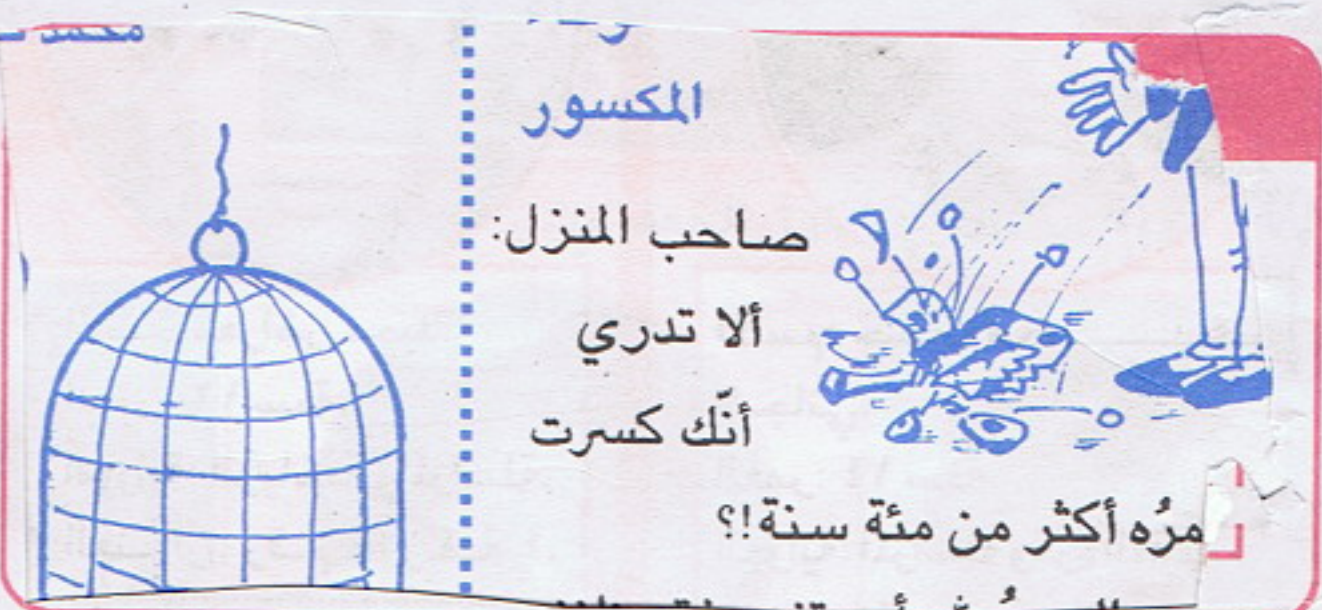 المكسور
صاحب المنزل:
ألا تدري
أنّك كسرت
مرُه أكثر من مئة سنة!؟